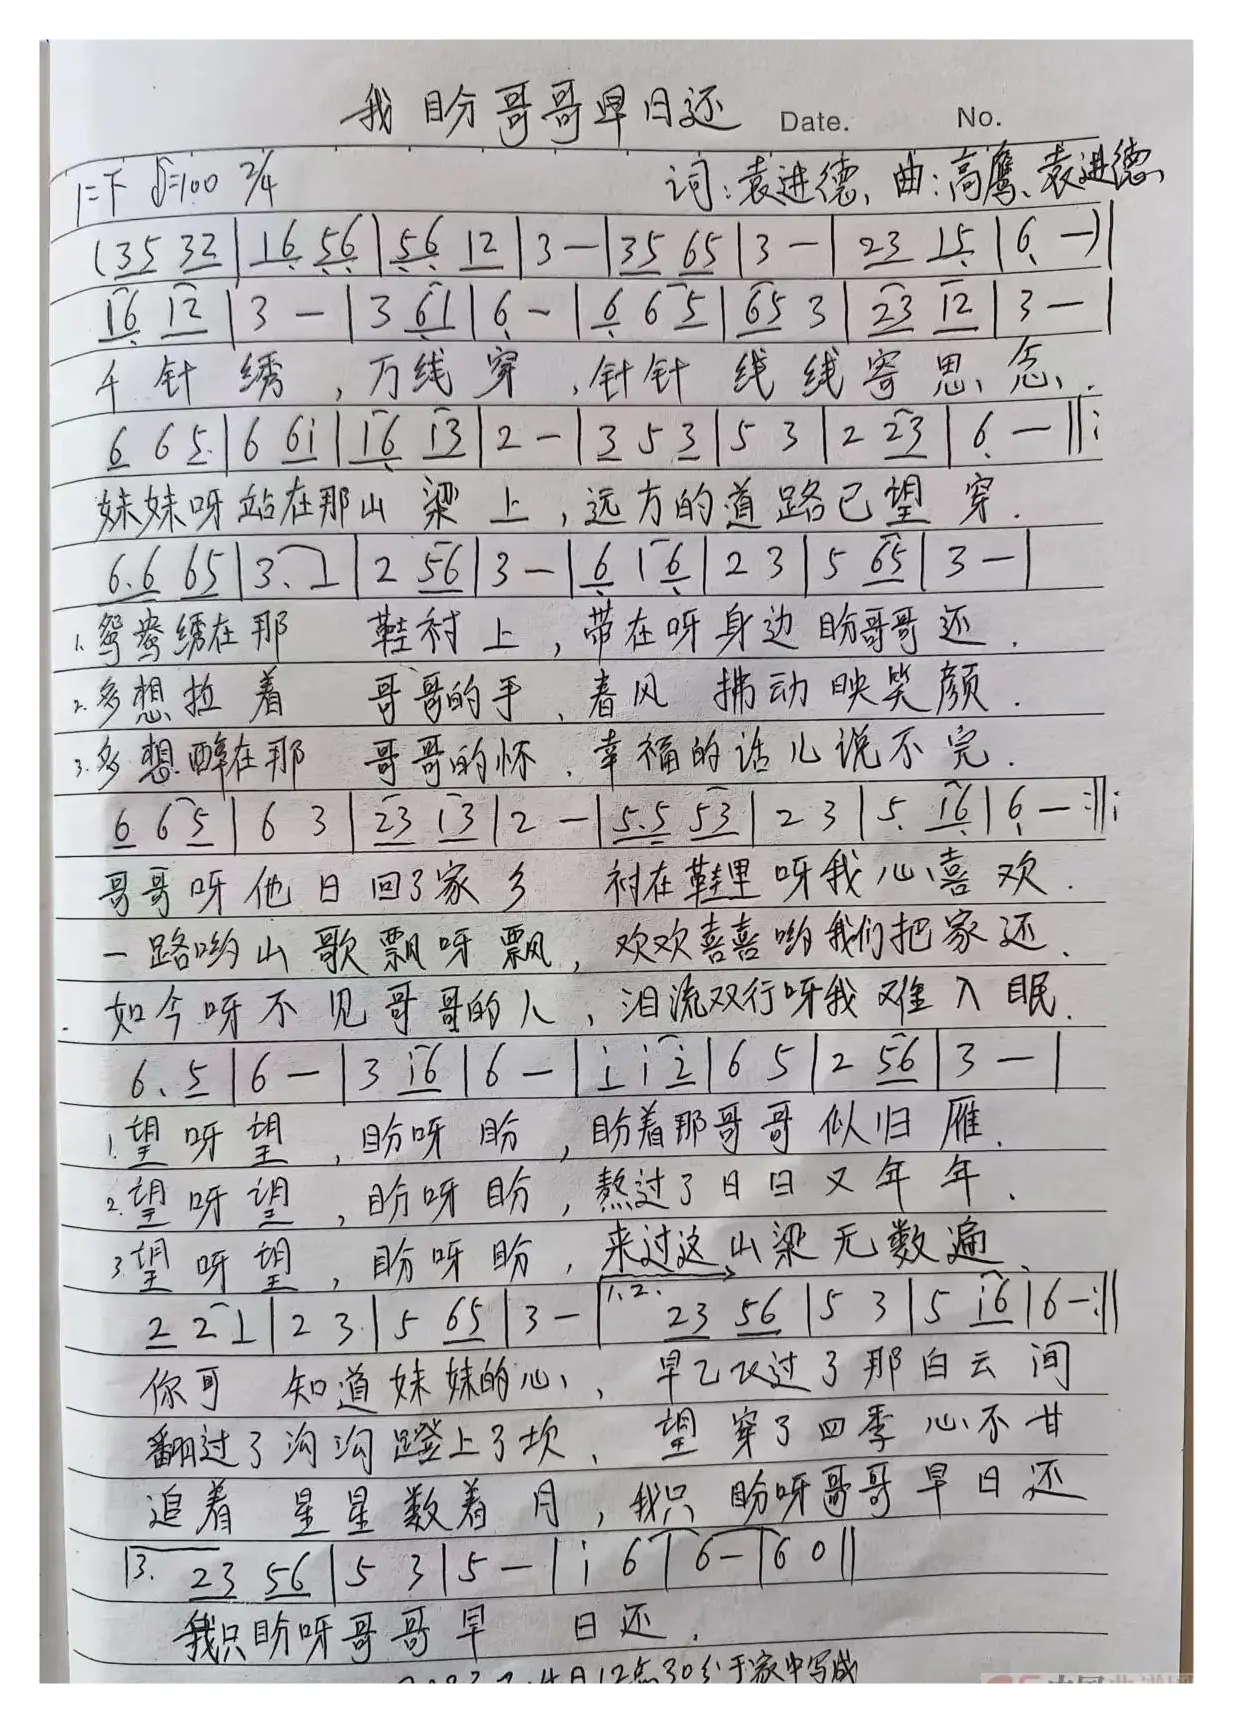 我盼哥哥早日还 Date. No.
1=F ♩=100 2/4 词:袁进德、曲:高鹰、袁进德
(35 32|16 56|56 12|3—|35 65|3—|23 15|6—)|
16 12|3—|3 61|6—|6 6 5|65 3|23 12|3—|
千针绣,万线穿,针针线线寄思念.
6 6 5|6 6i|16 13|2—|3 5 3|5 3|2 23|6—‖:
妹妹呀站在那山梁上,远方的道路已望穿.
6.6 65|3. 1|2 56|3—|6 1 6|2 3|5 65|3—|
1.鸳鸯绣在那 鞋衬上,带在呀身边盼哥哥还.
2.多想拉着 哥哥的手,春风 拂动映笑颜.
3.多想醉在那 哥哥的怀,幸福的话儿说不完.
6 6 5|6 3|23 13|2—|5.5 53|2 3|5. 16|6—:‖:
哥哥呀他日回了家乡 衬在鞋里呀我心喜欢.
一路哟山歌飘呀飘,欢欢喜喜哟我们把家还.
如今呀不见哥哥的人,泪流双行呀我难入眠.
6. 5|6—|3 i6|6—|i i 2|6 5|2 56|3—|
1.望呀望,盼呀盼,盼着那哥哥似归雁.
2.望呀望,盼呀盼,熬过了日日又年年.
3.望呀望,盼呀盼,来过这山梁无数遍
2 2 1|2 3|5 65|3—|1.2. 23 56|5 3|5 i6|6—:‖
你可 知道妹妹的心,早已飞过了那白云间
翻过了沟沟蹬上了坎,望穿了四季心不甘
追着 星星数着月,我只 盼呀哥哥早日还
|3. 23 56|5 3|5—|i 6|6—|6 0‖
我只盼呀哥哥早 日还.
月12点30分于家中写成